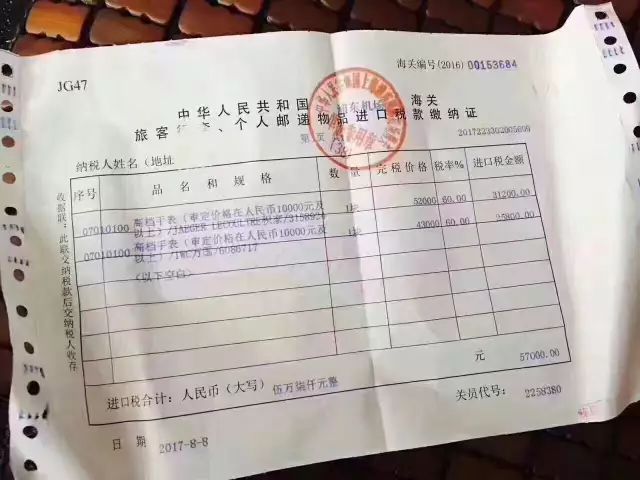 JG47
海关编号(2016) 00153684
中华人民共和国 浦东机场 海关
旅客行李、个人邮递物品进口税款缴纳证
第 页
2017223302005609
纳税人姓名(地址
序号 品名和规格 数量 完税价格 税率% 进口税金额
07010100 高档手表(审定价格在人民币10000元及以上)/JAEGER LECOULTRE积家/3158924 1块 52000 60.00 31200.00
07010100 高档手表(审定价格在人民币10000元及以上)/IWC万国/6086717 1块 43000 60.00 25800.00
(以下空白)
元 57000.00
进口税合计:人民币(大写) 伍万柒仟元整
关员代号: 2258380
日期 2017-8-8
收据联:此联交纳税款后交纳税人收存